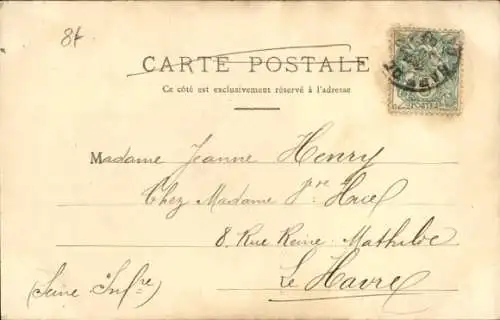 84
CARTE POSTALE
Ce côté est exclusivement réservé à l'adresse
Madame Jeanne Henry
Chez Madame Jre Huel
8 Rue Reine Mathilde
Le Havre
(Seine Infre)